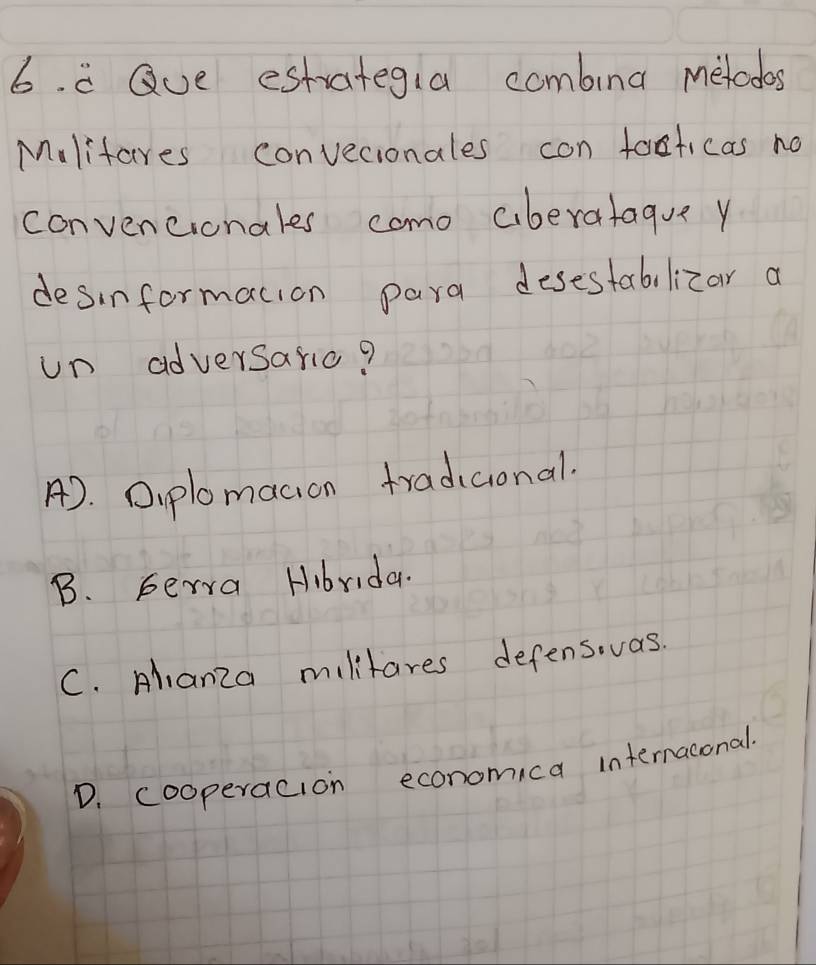 6. ¿ Que estrategia combina Métodos
Militares convecionales con tacticas no
convencionales como ciberataque y
desinformacion para desestabilizar a
un adversario?
A). Diplomacion tradicional.
B. Gerra Hibrida.
C. Alianza militares defensivas.
D. cooperación economica internaconal.